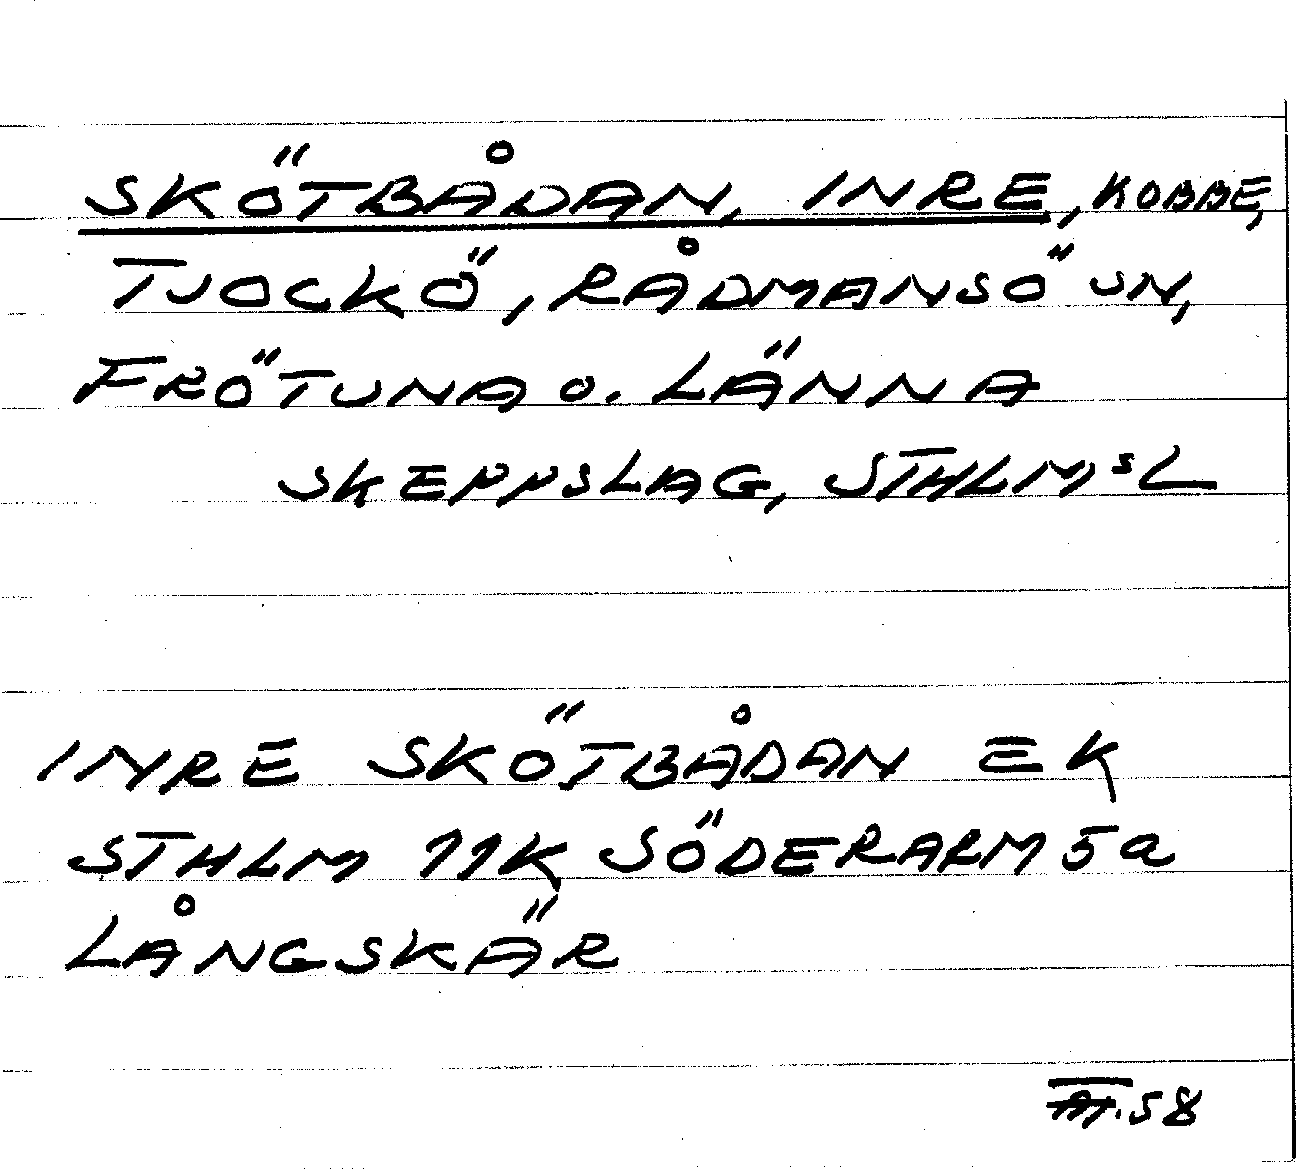 SKÖTBÅDAN, INRE, KOBBE,
TJOCKÖ, RÅDMANSÖ SN,
FRÖTUNA O. LÄNNA
SKEPPSLAG, STHLMSL
INRE SKÖTBÅDAN EK
STHLM 11K SÖDERARM 5a
LÅNGSKÄR
58